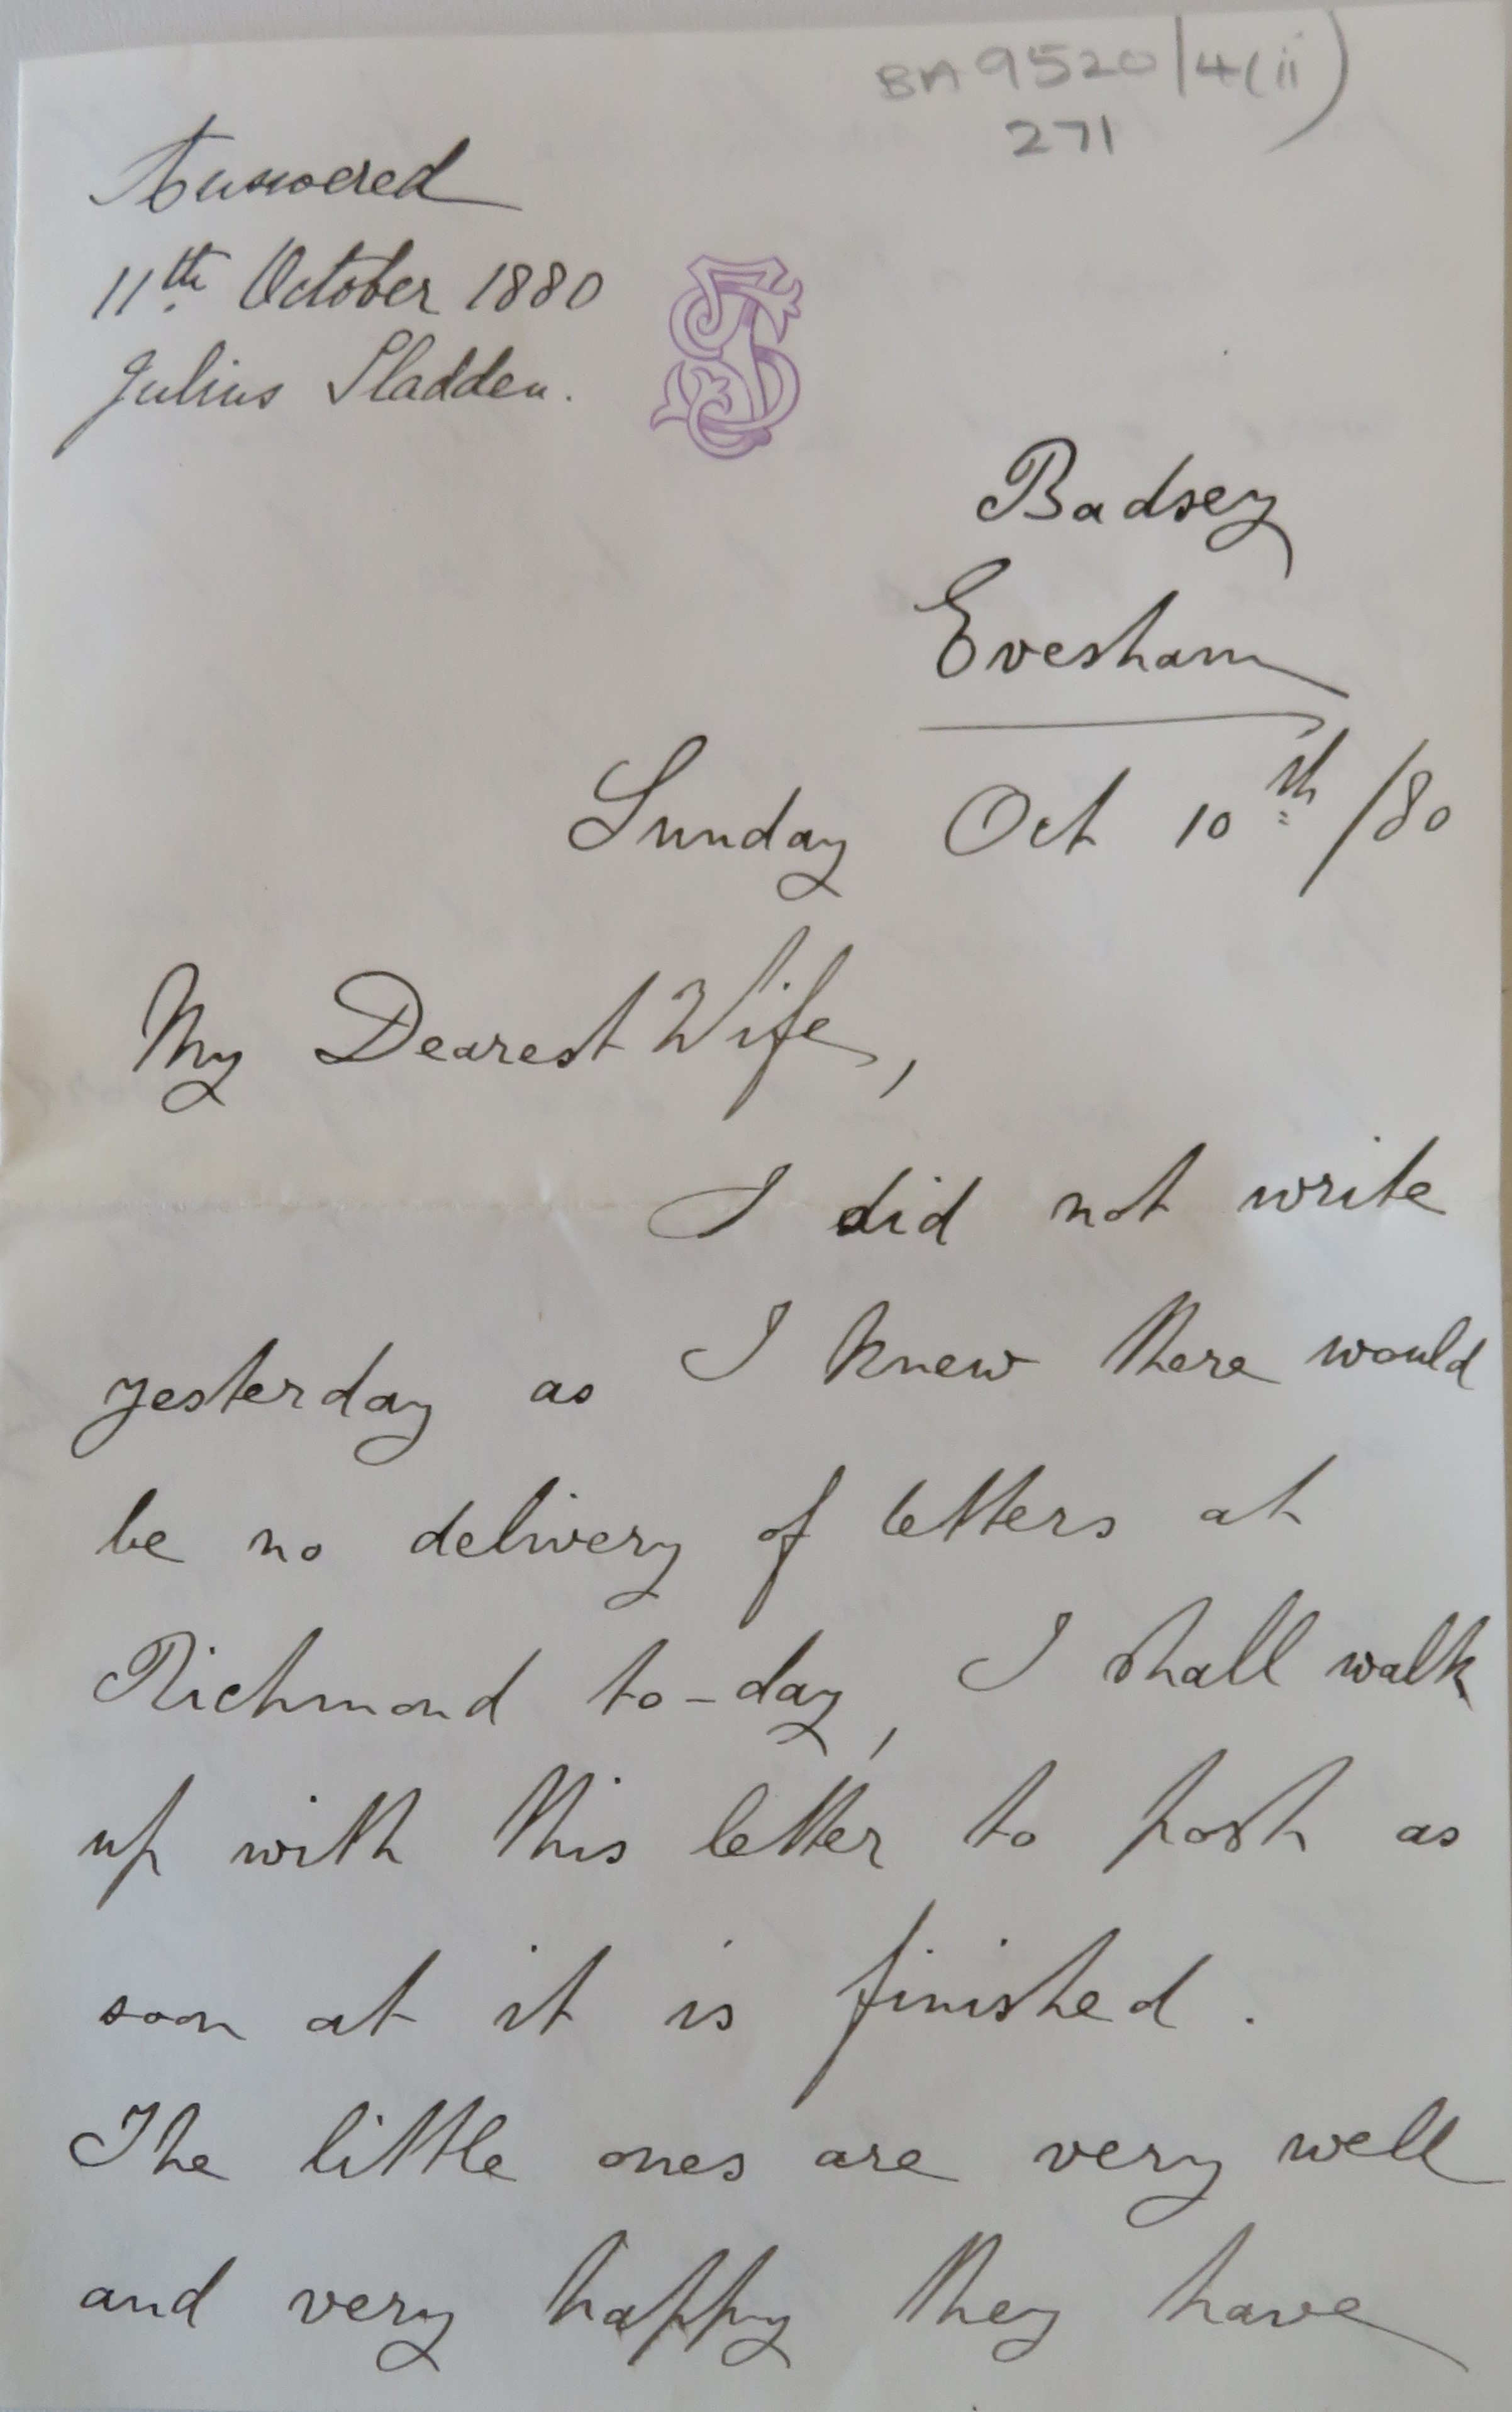 BA 9520/4(ii)
271
Answered
11th October 1880
Julius Sladden.
JS
Badsey
Evesham
Sunday Oct 10th /80
My Dearest Wife,
I did not write
yesterday as I knew there would
be no delivery of letters at
Richmond to-day, I shall walk
up with this letter to post as
soon at it is finished.
The little ones are very well
and very happy they have